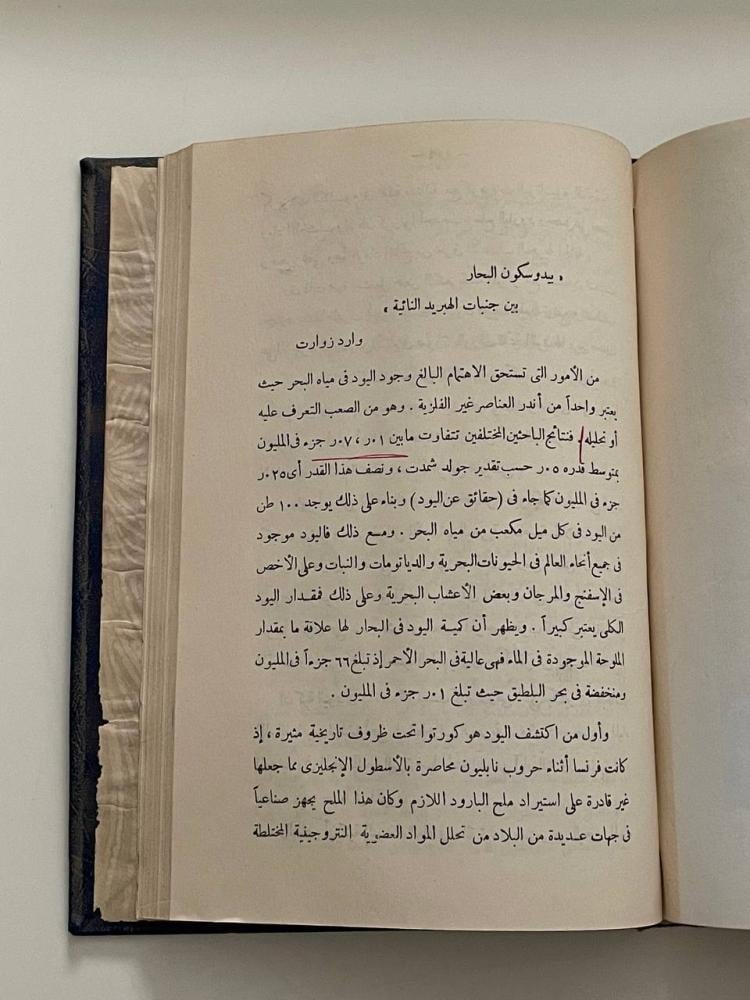 « بيدو سكون البحار
بين جنبات الهبريد النائية »
وارد زوارت
من الأمور التى تستحق الاهتمام البالغ وجود اليود فى مياه البحر حيث
يعتبر واحداً من أندر العناصر غير الفلزية . وهو من الصعب التعرف عليه
أو تحليله . فنتائج الباحثين المختلفين تتفاوت مابين ٠١ر ، ٠٧ر جزء فى المليون
بمتوسط قدره ٠٥ر حسب تقدير جولد شمدت ، ونصف هذا القدر أى ٠٢٥ر
جزء فى المليون كما جاء فى (حقائق عن اليود) وبناء على ذلك يوجد ١٠٠ طن
من اليود فى كل ميل مكعب من مياه البحر . ومسع ذلك فاليود موجود
فى جميع أنحاء العالم فى الحيونات البحرية والدياتومات والنبات وعلى الأخص
فى الإسفنج والمرجان وبعض الأعشاب البحرية وعلى ذلك فمقدار اليود
الكلى يعتبر كبيراً . ويظهر أن كمية اليود فى البحار لها علاقة ما بمقدار
الملوحة الموجودة فى الماء فهى عالية فى البحر الأحمر إذ تبلغ ٦٦ جزءاً فى المليون
ومنخفضة فى بحر البلطيق حيث تبلغ ٠١ر جزء فى المليون .
وأول من اكتشف اليود هو كورتوا تحت ظروف تاريخية مثيرة ، إذ
كانت فرنسا أثناء حروب نابليون محاصرة بالأسطول الإنجليزى مما جعلها
غير قادرة على استيراد ملح البارود اللازم وكان هذا الملح يجهز صناعياً
فى جهات عديدة من البلاد من تحلل المواد العضوية النتروجيفية المختلطة